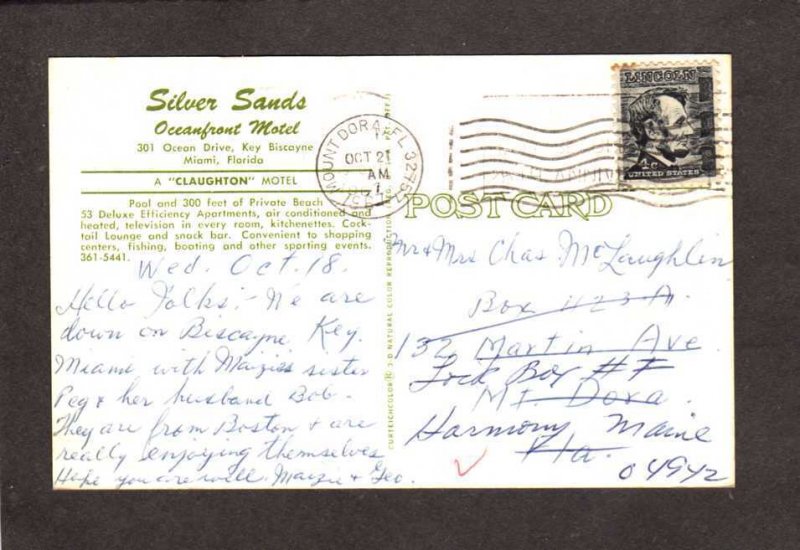 Silver Sands
Oceanfront Motel
301 Ocean Drive, Key Biscayne
Miami, Florida
A "CLAUGHTON" MOTEL
Pool and 300 feet of Private Beach
53 Deluxe Efficiency Apartments, air conditioned and
heated, television in every room, kitchenettes. Cock-
tail Lounge and snack bar. Convenient to shopping
centers, fishing, boating and other sporting events.
361-5441.
Wed. Oct. 18.
Hello Folks:- We are
down on Biscayne Key.
Miami with Maizies sister
Peg & her husband Bob.
They are from Boston & are
really enjoying themselves
Hope you are well. Maizie & Geo.
CURTEICHCOLOR® 3-D NATURAL COLOR REPRODUCTION
MOUNT DORA, FL 32757
OCT 21
AM
1967
LINCOLN
4c
UNITED STATES
POST CARD
Mr & Mrs Chas McLaughlin
Box 1123A.
132 Martin Ave
Lock Box #F
Mt Dora
Harmony Maine
Fla.
04942